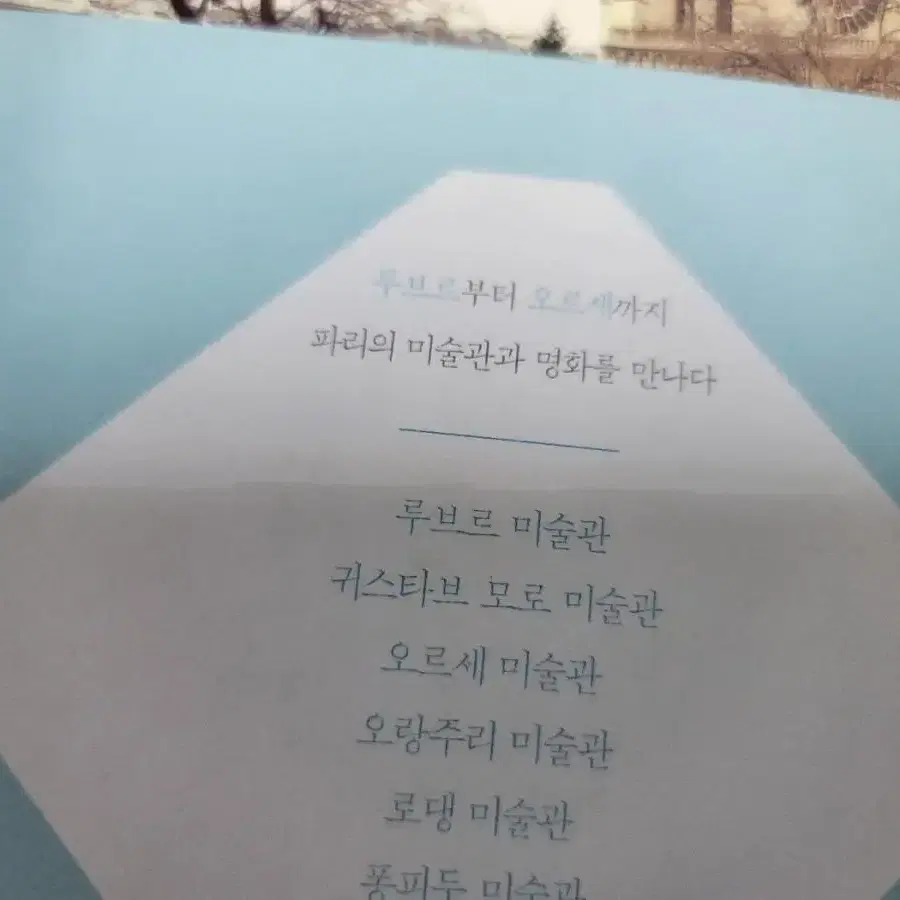 루브르부터 오르세까지
파리의 미술관과 명화를 만나다
루브르 미술관
귀스타브 모로 미술관
오르세 미술관
오랑주리 미술관
로댕 미술관
퐁피두 미술관